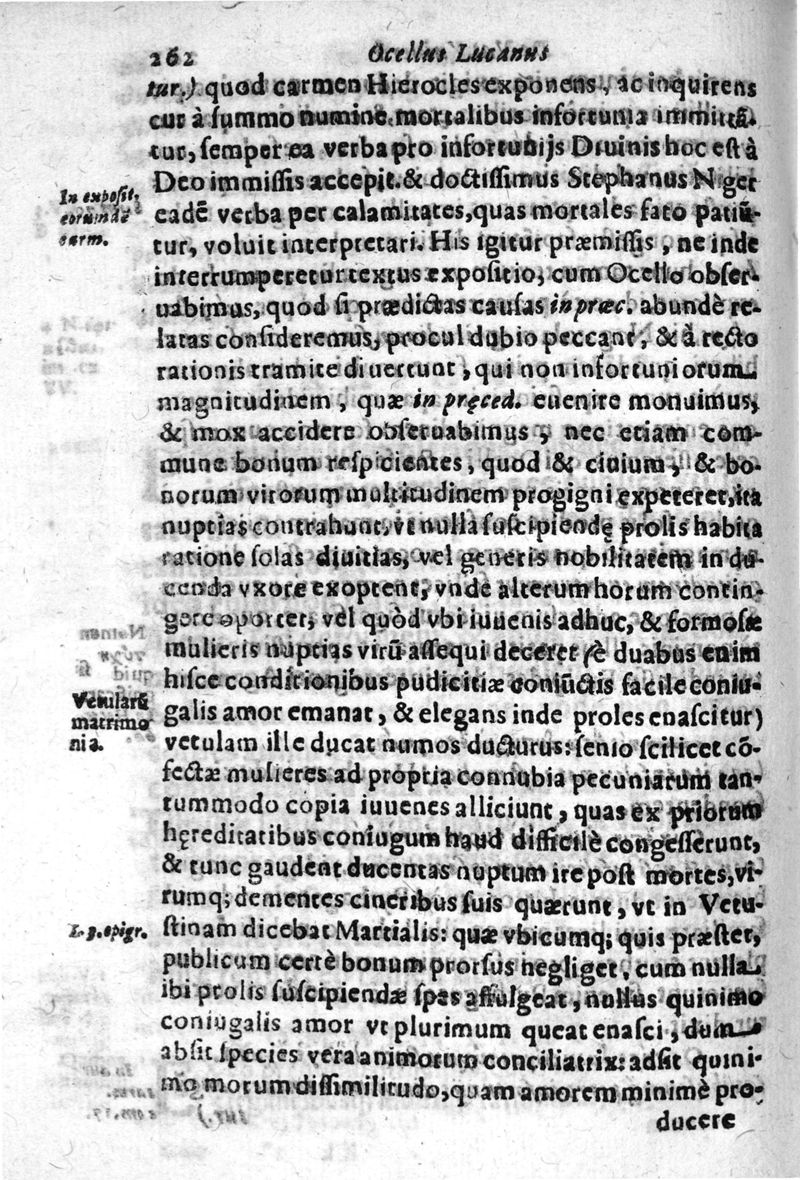 262 Ocellus Lucanus
tur.) quod carmen Hierocles exponens, ac inquirens
cur à summo numine mortalibus infortunia immittā-
tur, semper ea verba pro infortunijs Diuinis hoc est à
Deo immissis accepit. & doctissimus Stephanus Niger
In exposit.
eorumdē
carm.
eadē verba per calamitates, quas mortales fato patiū-
tur, voluit interpretari. His igitur præmissis, ne inde
interrumperetur textus expositio, cum Ocello obser-
uabimus, quod si prædictas causas in præc. abundè re-
latas consideremus, procul dubio peccant, & à recto
rationis tramite diuertunt, qui non infortuniorum
magnitudinem, quæ in pręced. euenire monuimus,
& mox accidere obseruabimus, nec etiam com-
mune bonum respicientes, quod & ciuium, & bo-
norum virorum multitudinem progigni expeteret, ita
nuptias contrahunt, vt nulla suscipiendę prolis habita
ratione solas diuitias, vel generis nobilitatem in du-
cenda vxore exoptent, vnde alterum horum contin-
gere oportet, vel quòd vbi iuuenis adhuc, & formosæ
mulieris nuptias virū assequi deceret (è duabus enim
hisce conditionibus pudicitiæ coniūctis facile coniu-
Vetularū
matrimo
nia.
galis amor emanat, & elegans inde proles enascitur)
vetulam ille ducat numos ducturus: senio scilicet cō-
fectæ mulieres ad propria connubia pecuniarum tan-
tummodo copia iuuenes alliciunt, quas ex priorum
hęreditatibus coniugum haud difficilè congesserunt,
& tunc gaudent ducentas nuptum ire post mortes, vi-
rumq; dementes cineribus suis quærunt, vt in Vetu-
L. 3. epigr.
stinam dicebat Martialis: quæ vbicumq; quis præstet,
publicum certè bonum prorsus negliget, cum nulla
ibi prolis suscipiendæ spes affulgeat, nullus quinimo
coniugalis amor vt plurimum queat enasci, dum
absit species vera animorum conciliatrix: adsit quini-
mo morum dissimilitudo, quam amorem minimè pro-
ducere